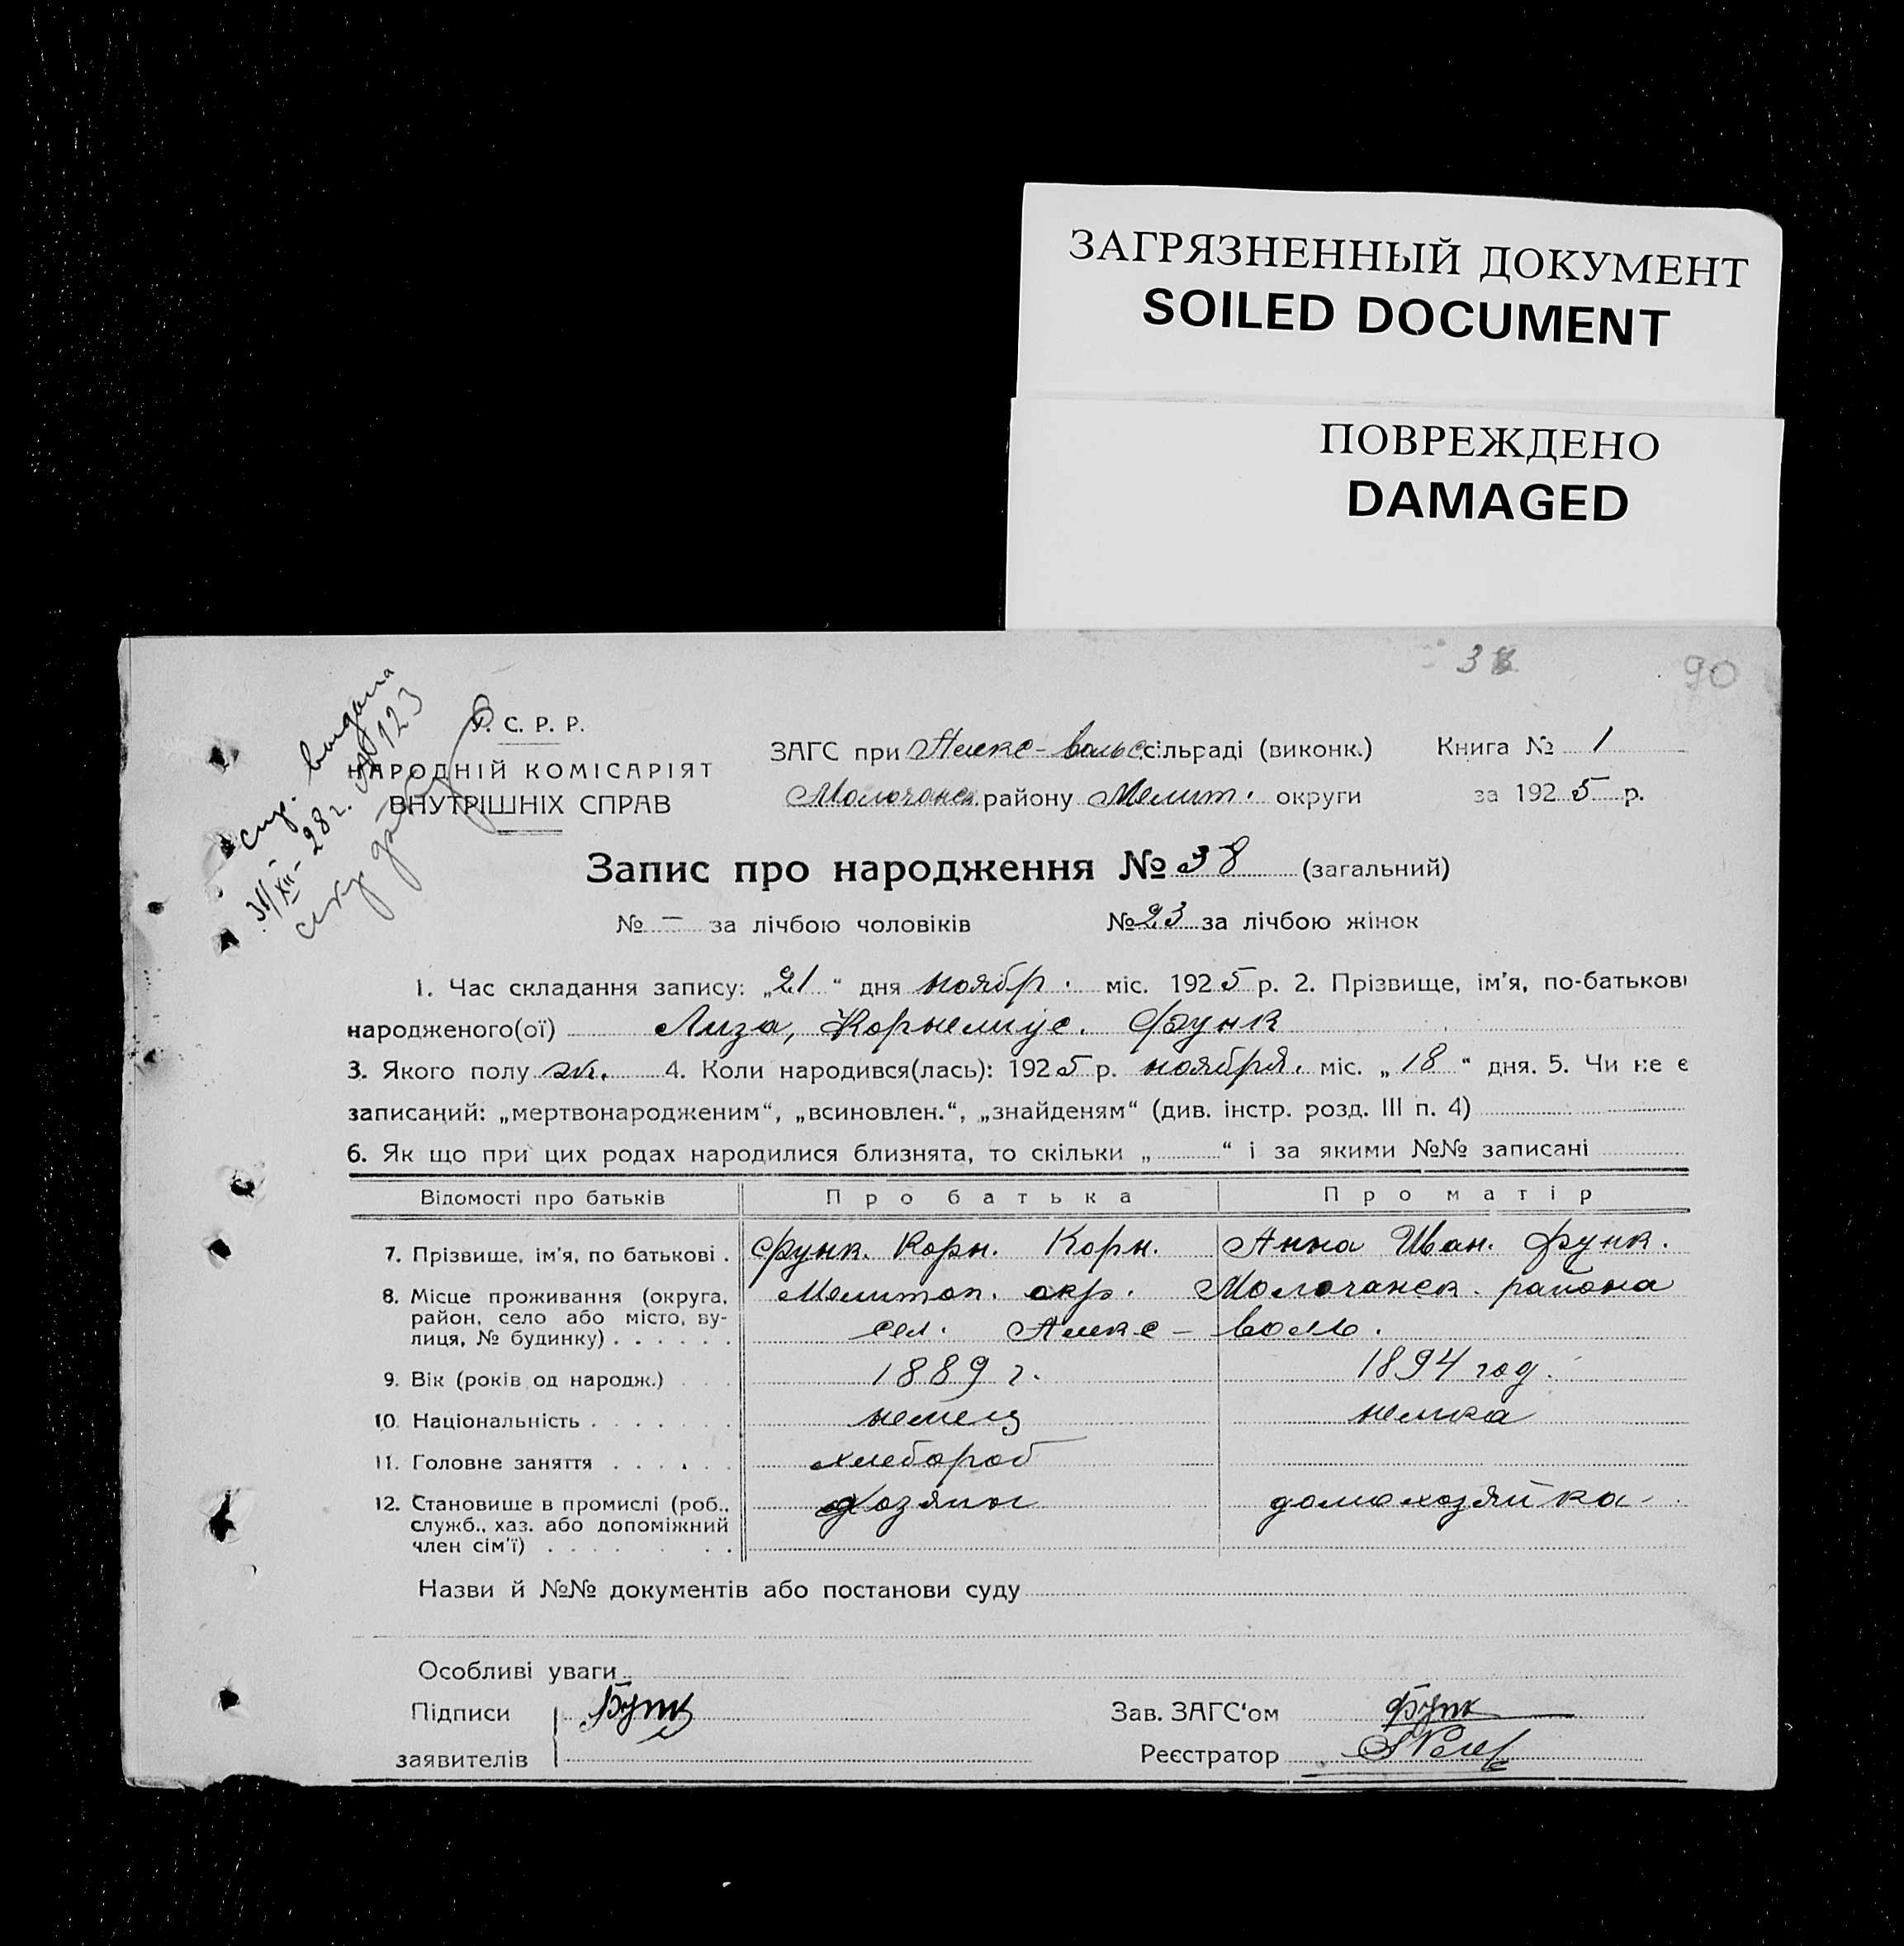 ЗАГРЯЗНЕННЫЙ ДОКУМЕНТ
SOILED DOCUMENT
ПОВРЕЖДЕНО
DAMAGED
90
спр. выдана
31/XII-28 г. № 123
У. С. Р. Р.
НАРОДНІЙ КОМІСАРІЯТ
ВНУТРІШНІХ СПРАВ
ЗАГС при Алекс-вольс. сільраді (виконк.) Книга № 1
Молочанск. району Мелит. округи за 1925 р.
Запис про народження № 38 (загальний)
№ — за лічбою чоловіків № 23 за лічбою жінок
1. Час складання запису: „21“ дня ноябр. міс. 1925 р. 2. Прізвище, ім'я, по-батькові
народженого(ої) Лиза, Корнелиус. Функ
3. Якого полу ж. 4. Коли народився(лась): 1925 р. ноября. міс. „18“ дня. 5. Чи не є
записаний: „мертвонародженим“, „всиновлен.“, „знайденям“ (див. інстр. розд. III п. 4)
6. Як що при цих родах народилися близнята, то скільки „ “ і за якими №№ записані
Відомості про батьків Про батька Про матір
7. Прізвище, ім'я, по батькові . Функ. Корн. Корн. Анна Иван. Функ.
8. Місце проживання (округа, Мелитоп. окр. Молочанск. района
район, село або місто, ву-
лиця, № будинку) . . . . . . сел. Алекс-воль.
9. Вік (років од народж.) . . . 1889 г. 1894 год.
10. Національність . . . . . . немец немка
11. Головне заняття . . . . . . хлебороб
12. Становище в промислі (роб., хозяин домохозяйка
служб., хаз. або допоміжний
член сім'ї) . . . . . . .
Назви й №№ документів або постанови суду
Особливі уваги
Підписи Зав. ЗАГС'ом
заявителів Реєстратор